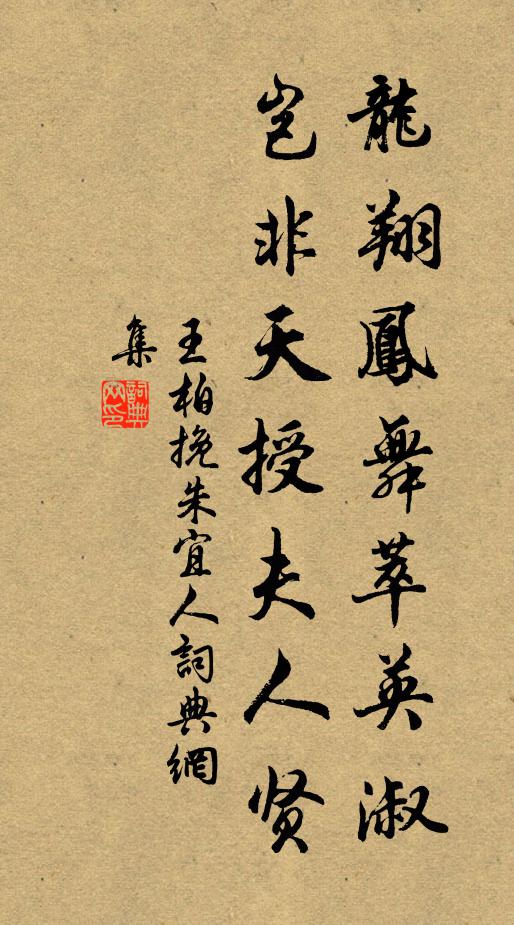 龍翔鳳舞萃英淑
豈非天授夫人贤
王柏挽朱宜人詞典網
集
詞典網印